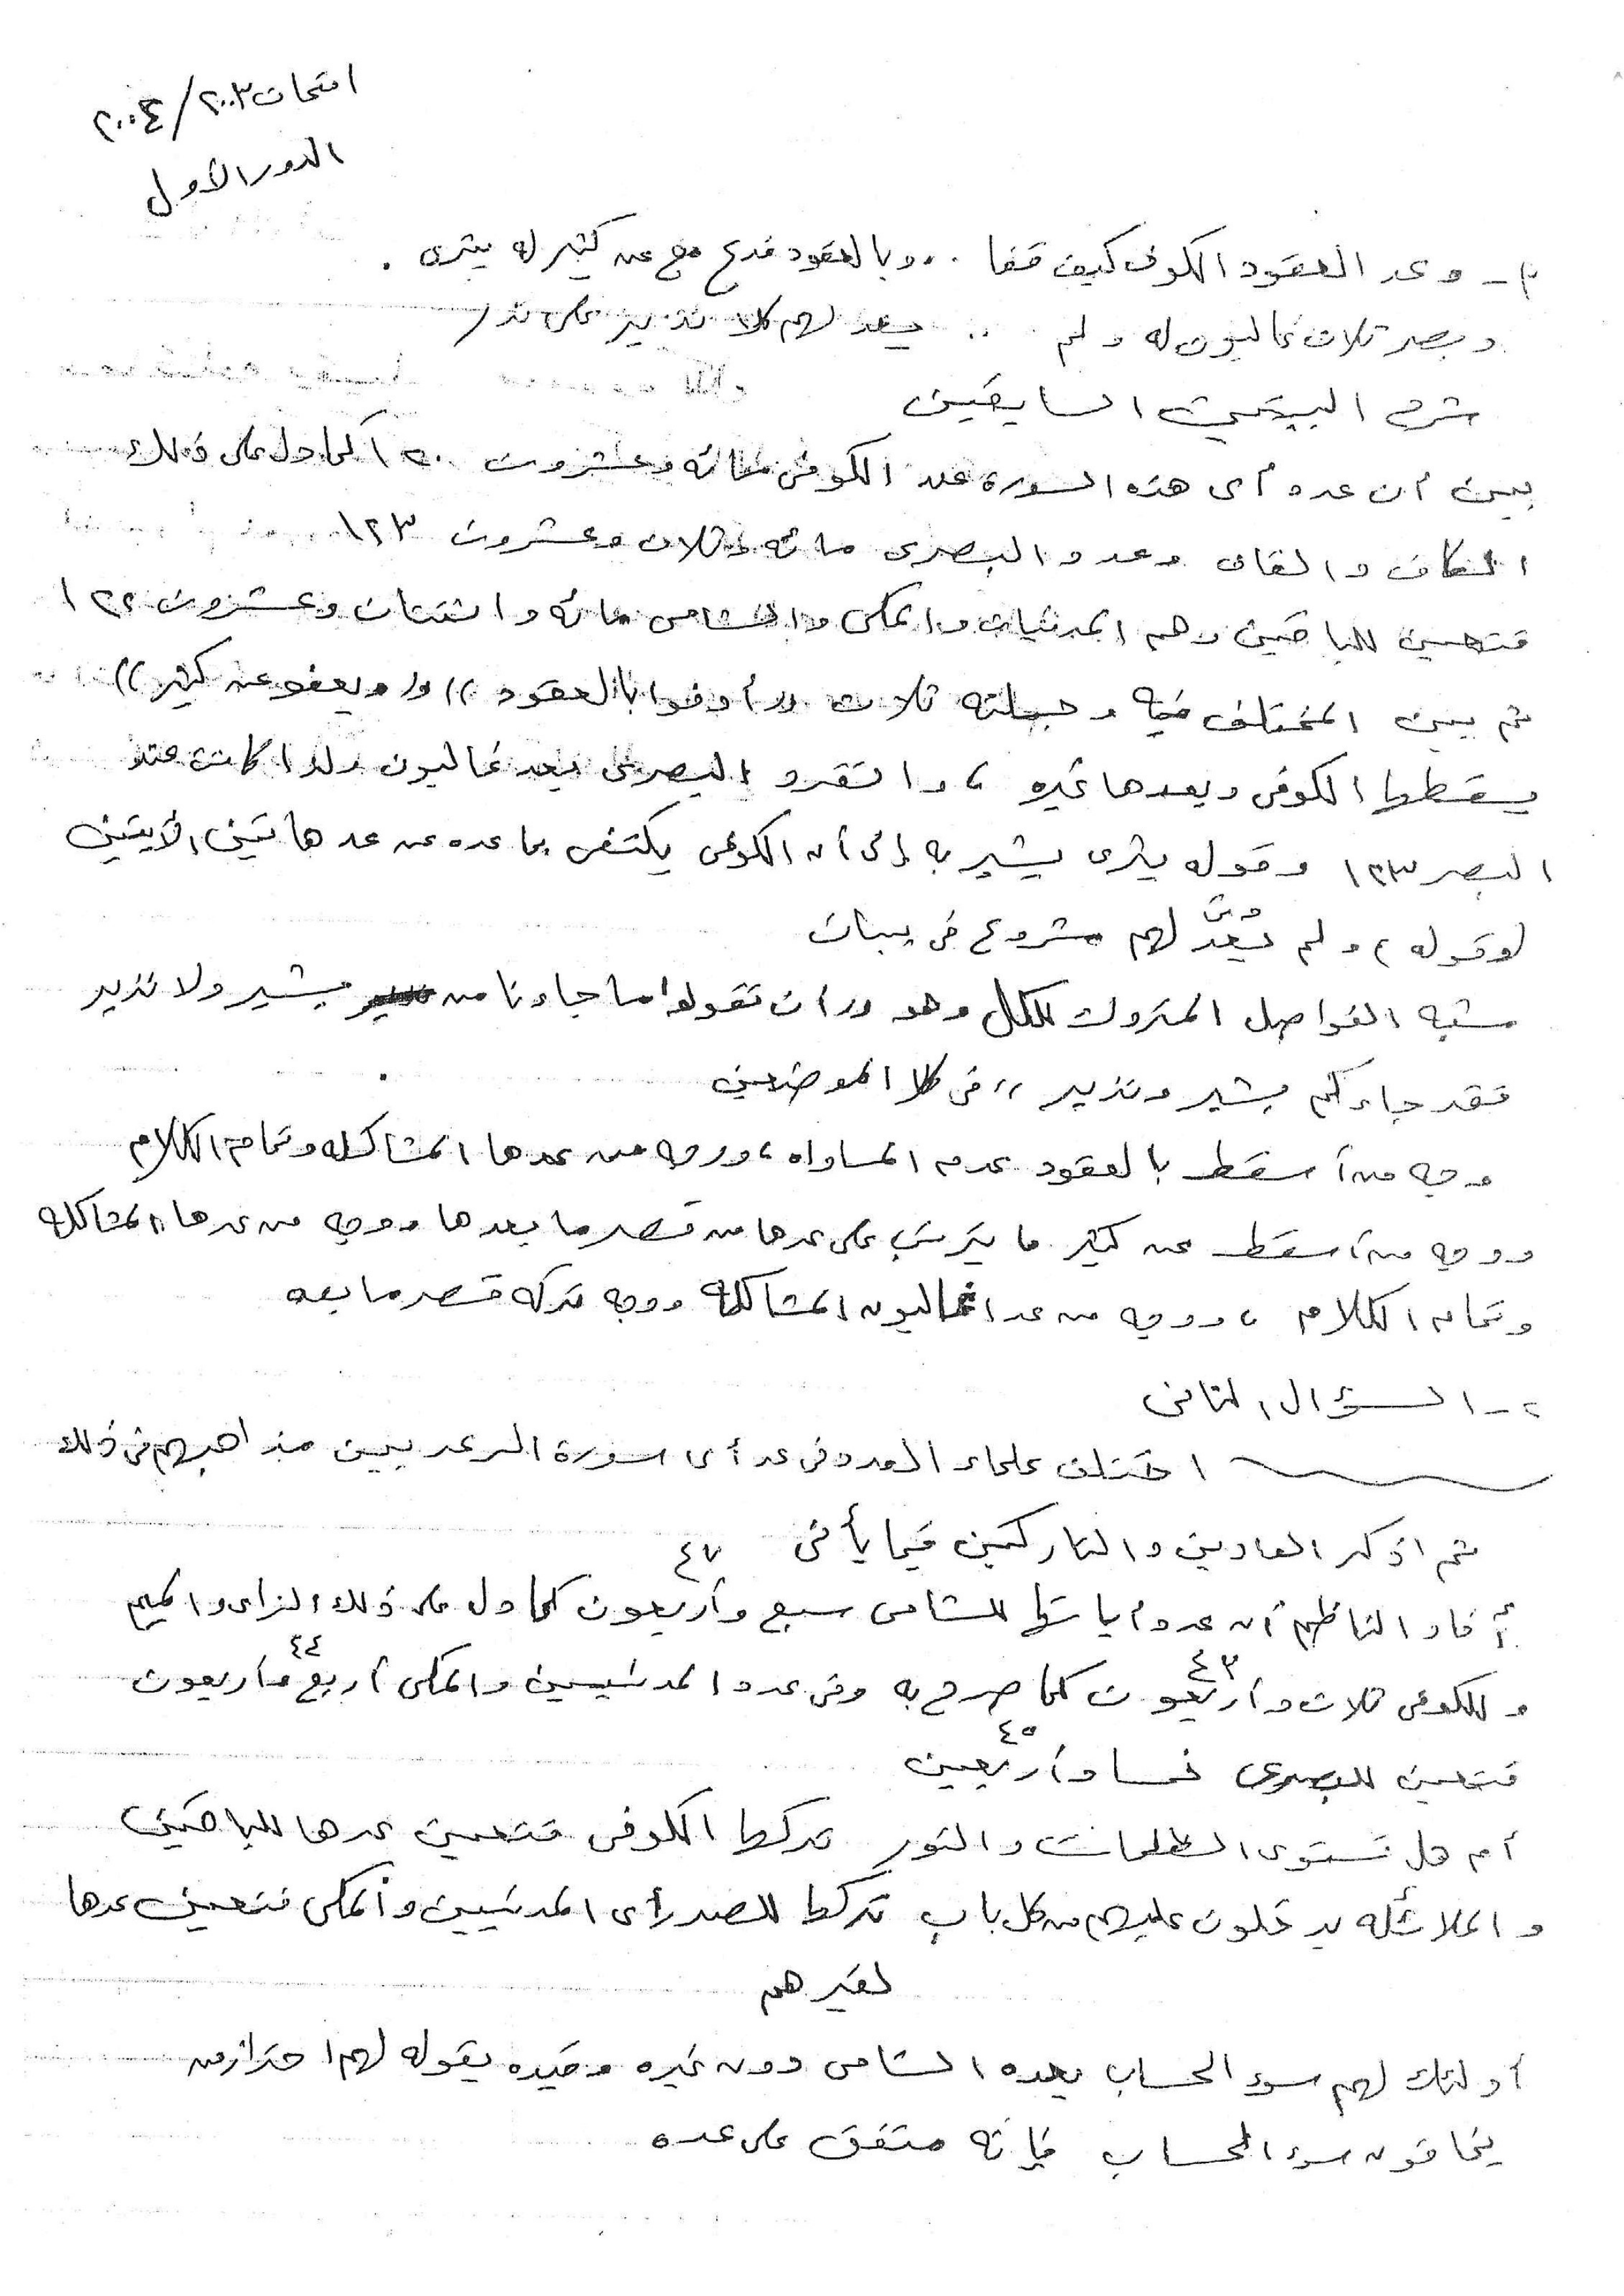 امتحان ٢٠٠٣/٢٠٠٤
الدور الأول
٢- وعد العقود الكوفى كيف قفا .. وبالعقود فدع مع عن كثير له يثرى .
وبصر ثلاث غالبون له ولم .. يعد لهم كلا نذير على نذر
شرح البيتين السابقين
بين أن عدد أى هذه السورة عند الكوفى مائه وعشرون ١٢٠ كما دل على ذلك
الكاف والقاف وعدد البصرى مائه وثلاث وعشرون ١٢٣
فتعين للباقين وهم المدنيان والمكى والشامى مائه واثنتان وعشرون ١٢٢
ثم بين المختلف فيه وجملته ثلاث ((أوفوا بالعقود)) و((ويعفو عن كثير))
يسقطها الكوفى ويعدها غيره ، وانفرد البصرى بعد غالبون ولذا كانت عند
البصر ١٢٣ وقوله يثرى يشير به إلى أن الكوفى يكتفى بما عده عن عد هاتين الآيتين
وقوله ، ولم يُعَدَّ لهم شروع فى بيان
شبه الفواصل المتروك للكل وهو ((أن تقولوا ما جاءنا من بشير ولا نذير
فقد جاءكم بشير ونذير )) فى كلا الموضعين
وجه من أسقط بالعقود عدم المساواه ، ووجه من عدها المشاكله وتمام الكلام
ووجه من أسقط عن كثير ما يترتب على عدها من قصر ما بعدها ووجه من عدها المشاكله
وتمام الكلام ، ووجه من عد غالبون المشاكله ووجه تركه قصر ما بعده
٢- السؤال الثانى
اختلف علماء العدد فى عد أى سورة الرعد بين مذاهبهم فى ذلك
ثم اذكر العادين والتاركين فيما يأتى
أفاد الناظم أن عدد أياتها للشامى سبع وأربعون ٤٧ كما دل على ذلك الزاى والميم
وللكوفى ثلاث وأربعون ٤٣ كما صرح به وفى عدد المدنيين والمكى أربع وأربعون ٤٤
فتعين للبصرى خمسا وأربعين ٤٥
أم هل تستوى الظلمات والنور تركها الكوفى فتعين عدها للباقين
والملائكه يدخلون عليهم من كل باب تركها للصدر أى المدنيين والمكى فتعين عدها
لغيرهم
أولئك لهم سوء الحساب يعده الشامى دون غيره وقيده بقوله لهم احترازمن
يخافون سوء الحساب فإنه متفق على عده